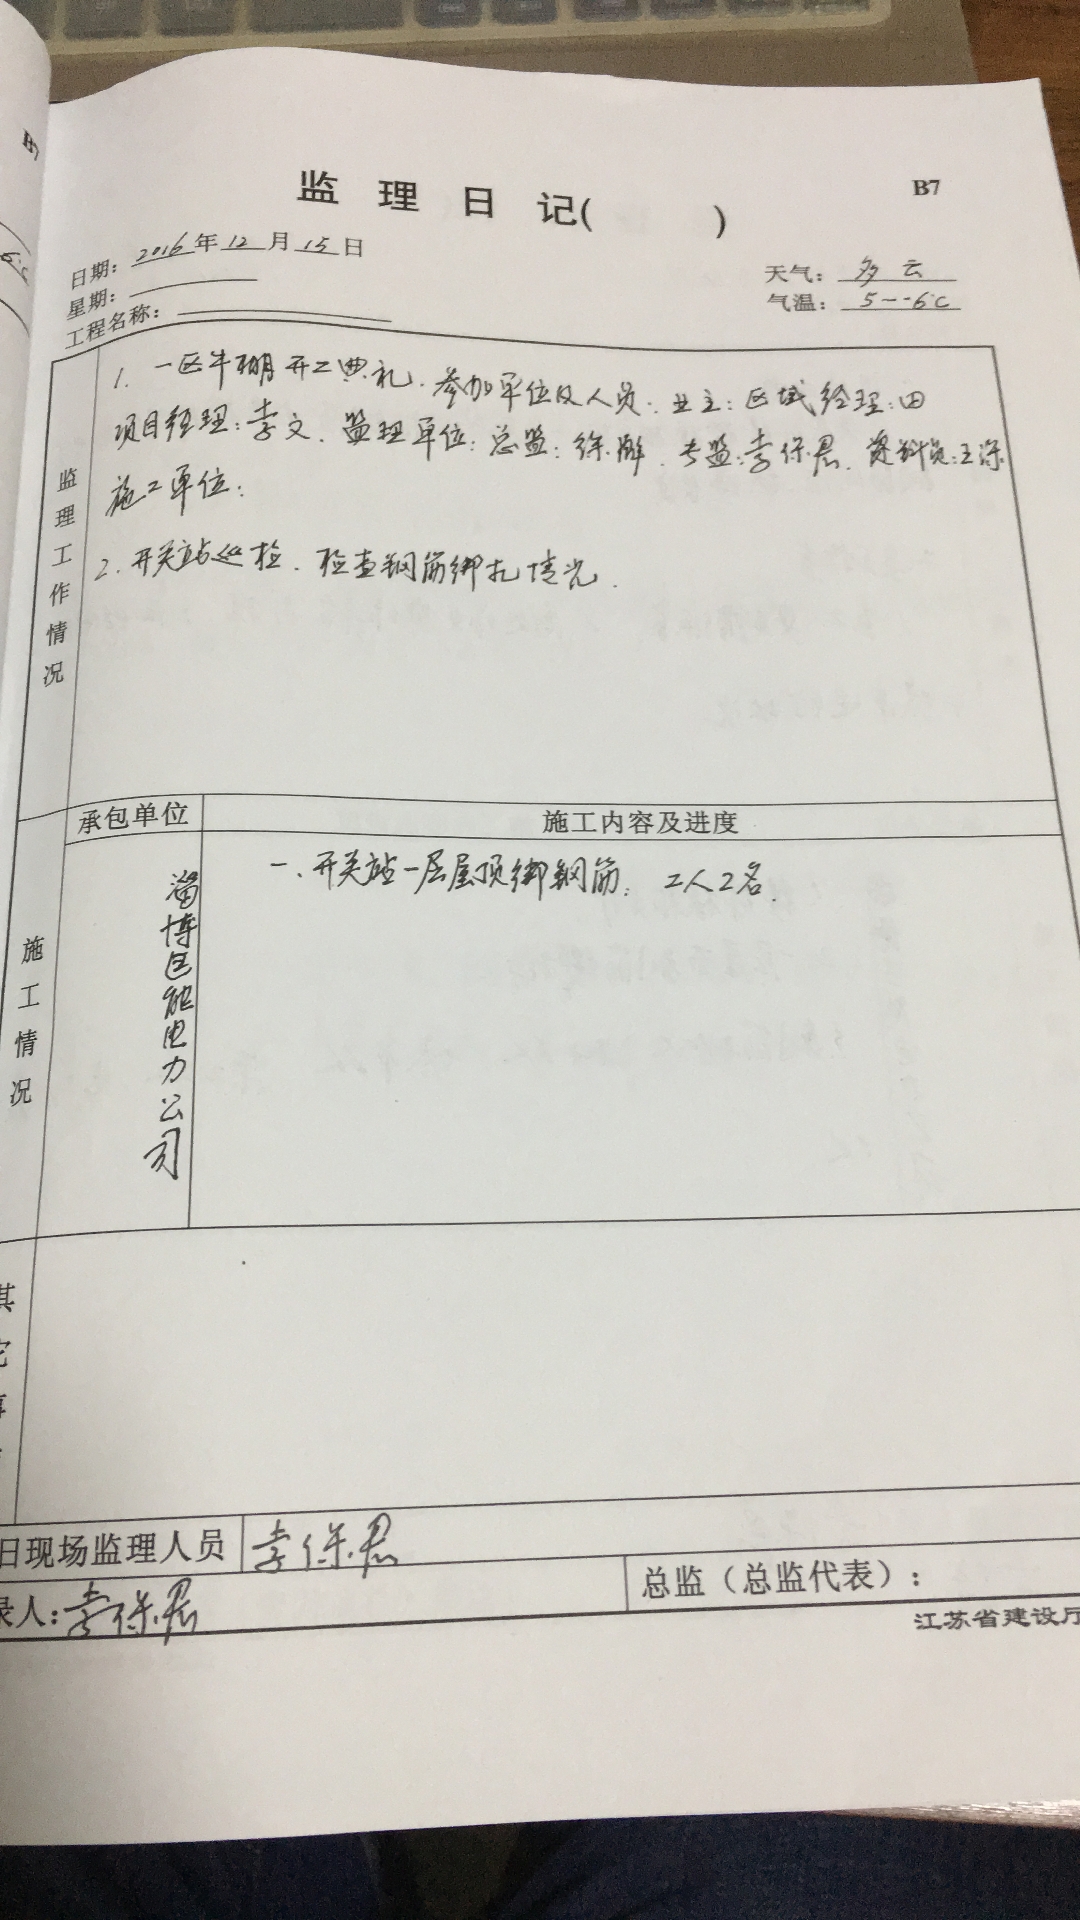 B7
监理日记( )
B7
日期：2016年12月15日
天气：多云
星期：
气温：5--6℃
工程名称：
监理工作情况
1. 一区牛棚开工典礼. 参加单位及人员: 业主: 区域经理: 田
项目经理: 李文. 监理单位: 总监: 徐 . 专监: 李保君. 资料员: 王
施工单位:
2. 开关站巡检. 检查钢筋绑扎情况.
承包单位
施工内容及进度
施工情况
淄博 能电力公司
一. 开关站一层屋顶绑钢筋: 工人2名.
其它事
日现场监理人员
李保君
录人: 李保君
总监（总监代表）:
江苏省建设厅